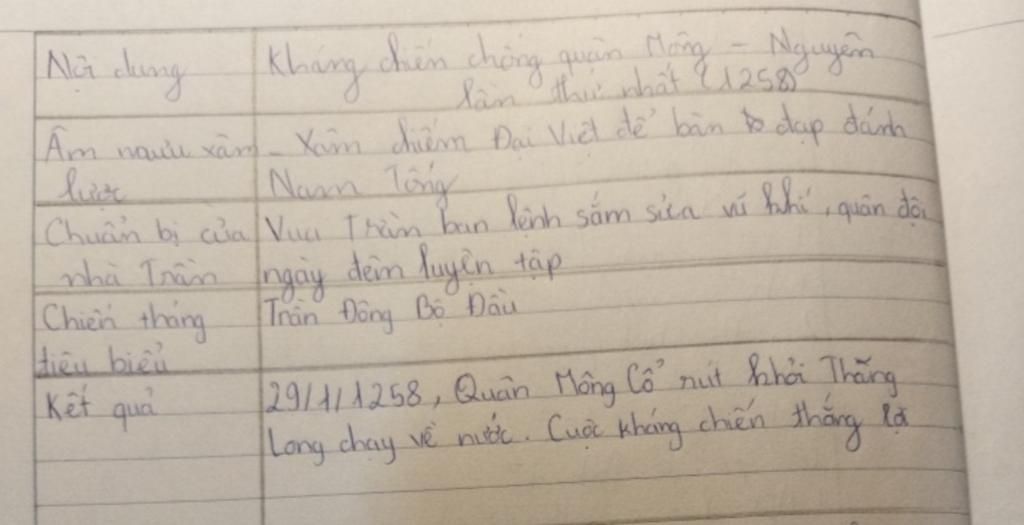 Nội dung
Kháng chiến chống quân Mông - Nguyên
lần thứ nhất (1258)
Âm mưu xâm
lược
- Xâm chiếm Đại Việt để bàn đạp đánh
Nam Tống
Chuẩn bị của
nhà Trần
Vua Trần ban lệnh sắm sửa vũ khí, quân đội
ngày đêm luyện tập
Chiến thắng
tiêu biểu
Trận Đông Bộ Đầu
Kết quả
29/1/1258, Quân Mông Cổ rút khỏi Thăng
Long chạy về nước. Cuộc kháng chiến thắng lợi